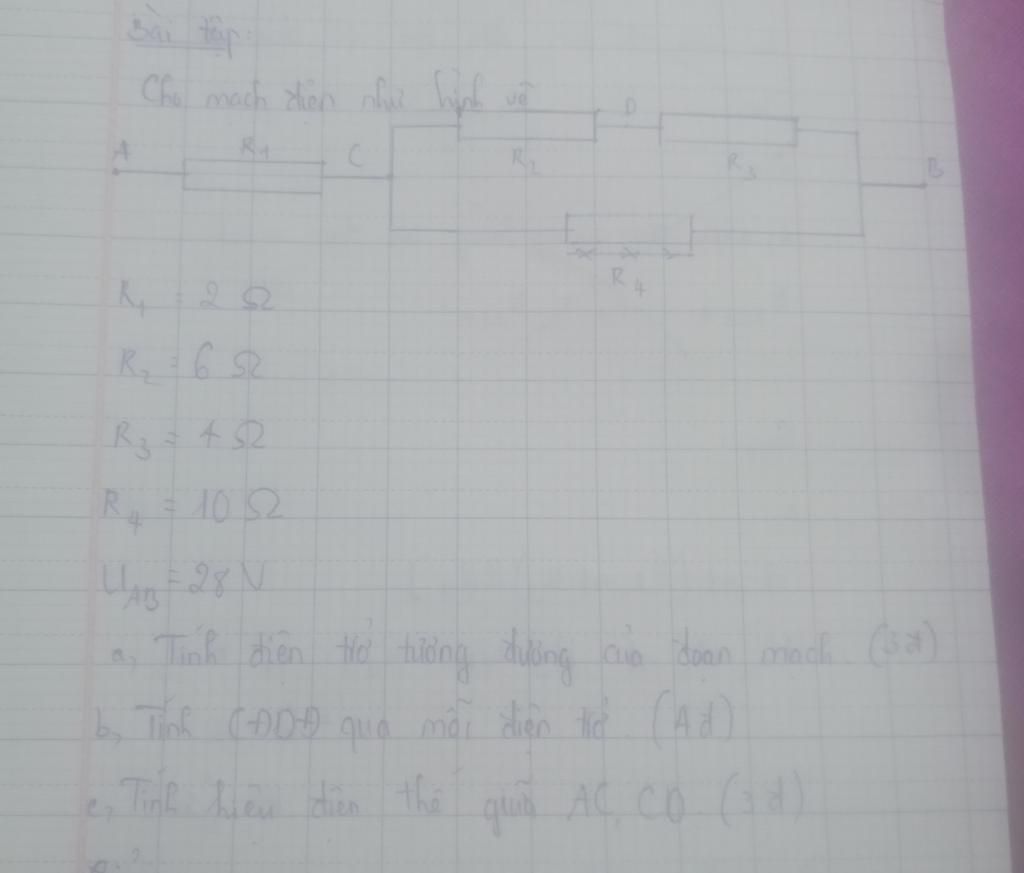 Bài tập:
Cho mạch điện như hình vẽ
A R1 C R2 D R3 B
R4
R1 = 2 Ω
R2 = 6 Ω
R3 = 4 Ω
R4 = 10 Ω
UAB = 28 V
a, Tính điện trở tương đương của đoạn mạch. (3đ)
b, Tính CĐDĐ qua mỗi điện trở. (4đ)
c, Tính hiệu điện thế giữa AC, CD. (3đ)